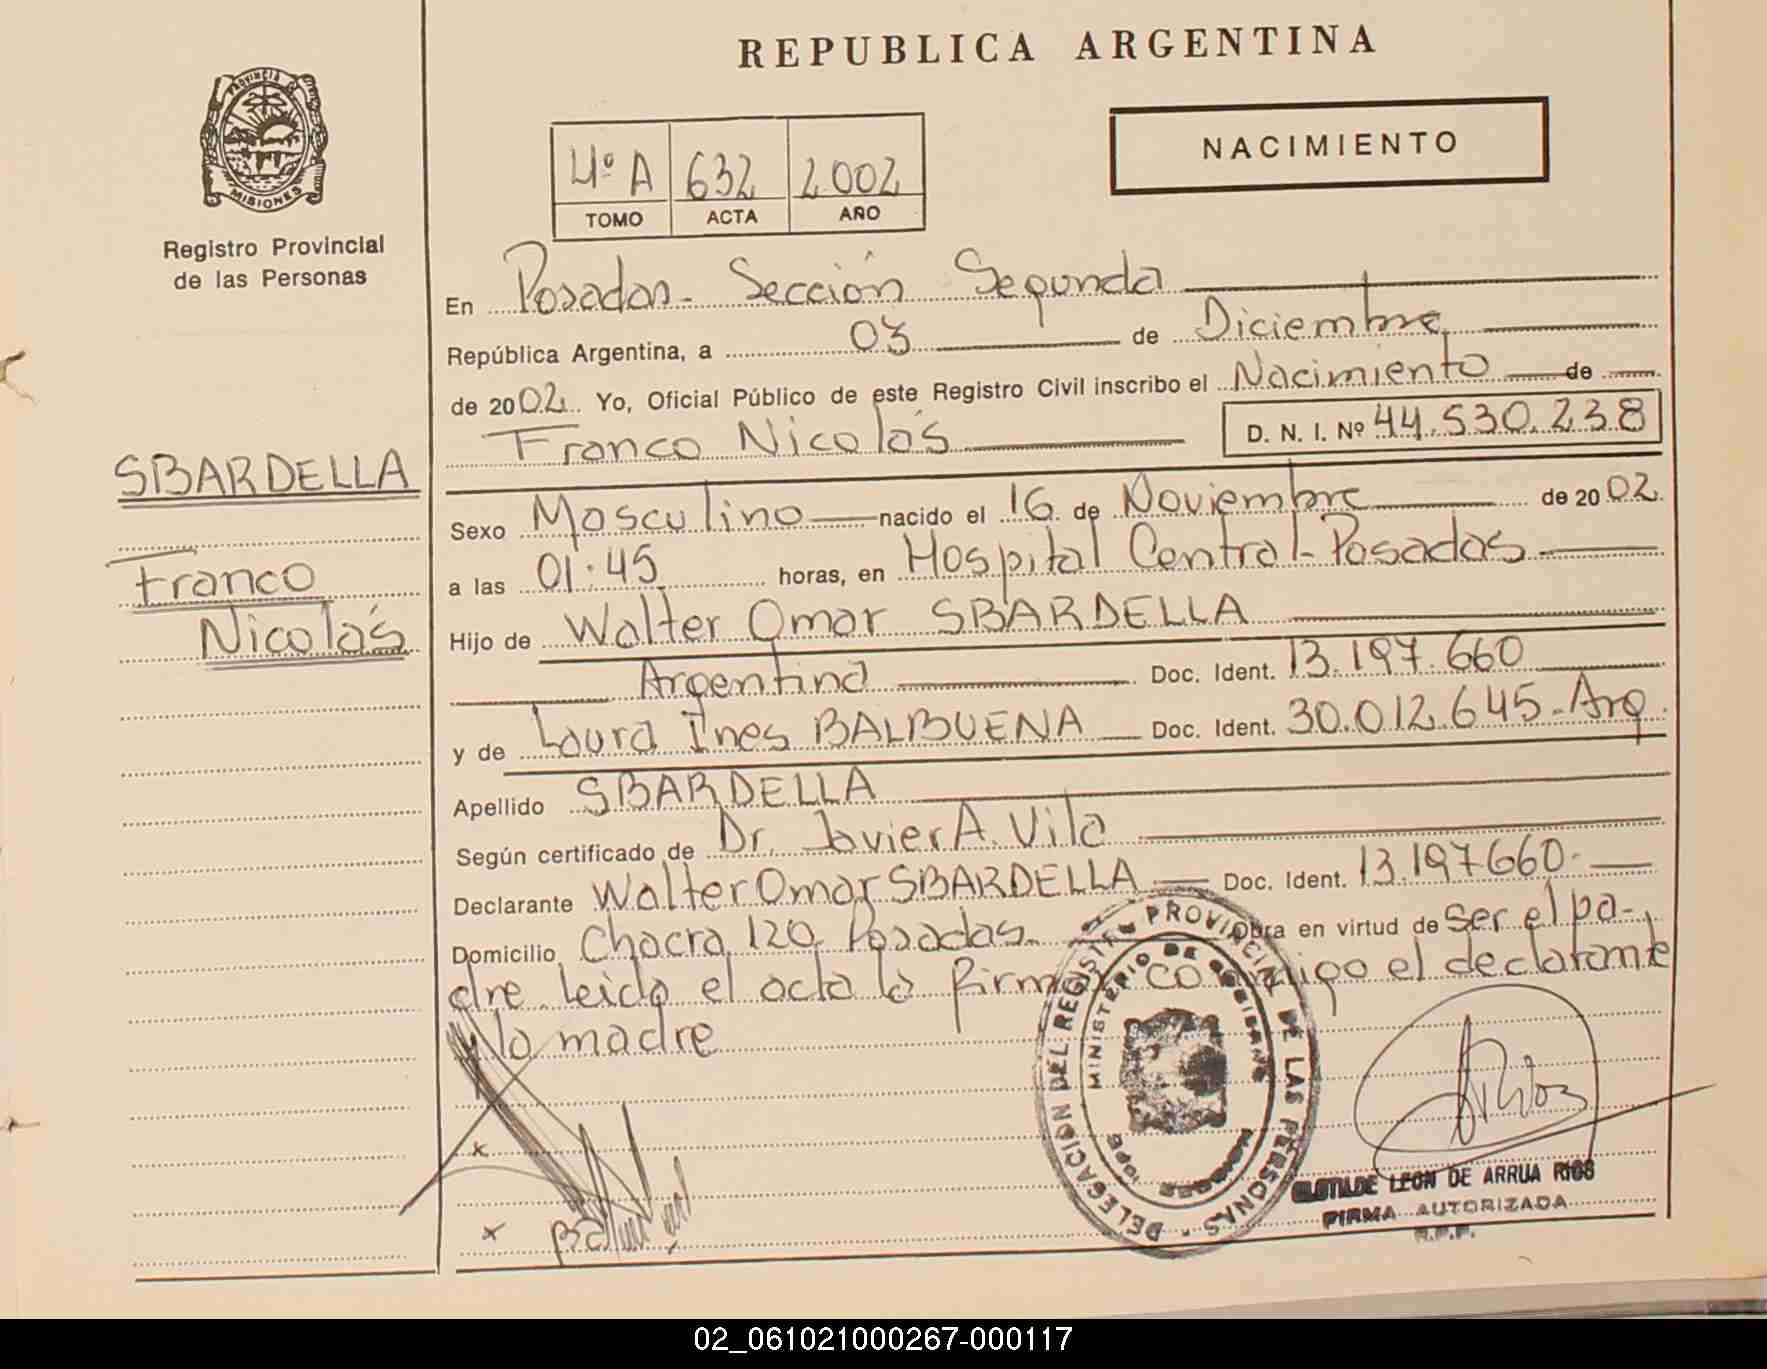 REPUBLICA ARGENTINA
PROVINCIA
MISIONES
Registro Provincial
de las Personas
4º A 632 2002
TOMO ACTA AÑO
NACIMIENTO
SBARDELLA
Franco
Nicolás
En Posadas - Sección Segunda
República Argentina, a 03 de Diciembre
de 2002 Yo, Oficial Público de este Registro Civil inscribo el Nacimiento de
Franco Nicolás D. N. I. Nº 44.530.238
Sexo Masculino nacido el 16 de Noviembre de 2002
a las 01:45 horas, en Hospital Central - Posadas
Hijo de Walter Omar SBARDELLA
Argentina Doc. Ident. 13.197.660
y de Laura Ines BALBUENA Doc. Ident. 30.012.645 - Arg.
Apellido SBARDELLA
Según certificado de Dr. Javier A. Vila
Declarante Walter Omar SBARDELLA Doc. Ident. 13.197660
Domicilio Chacra 120 Posadas Obra en virtud de Ser el pa-
dre leida el acta la firman el declarante
y la madre
DELEGACION DEL REGISTRO PROVINCIAL DE LAS PERSONAS
MINISTERIO DE GOBIERNO
CLOTILDE LEON DE ARRUA RIOS
FIRMA AUTORIZADA
R.P.P.
02_061021000267-000117